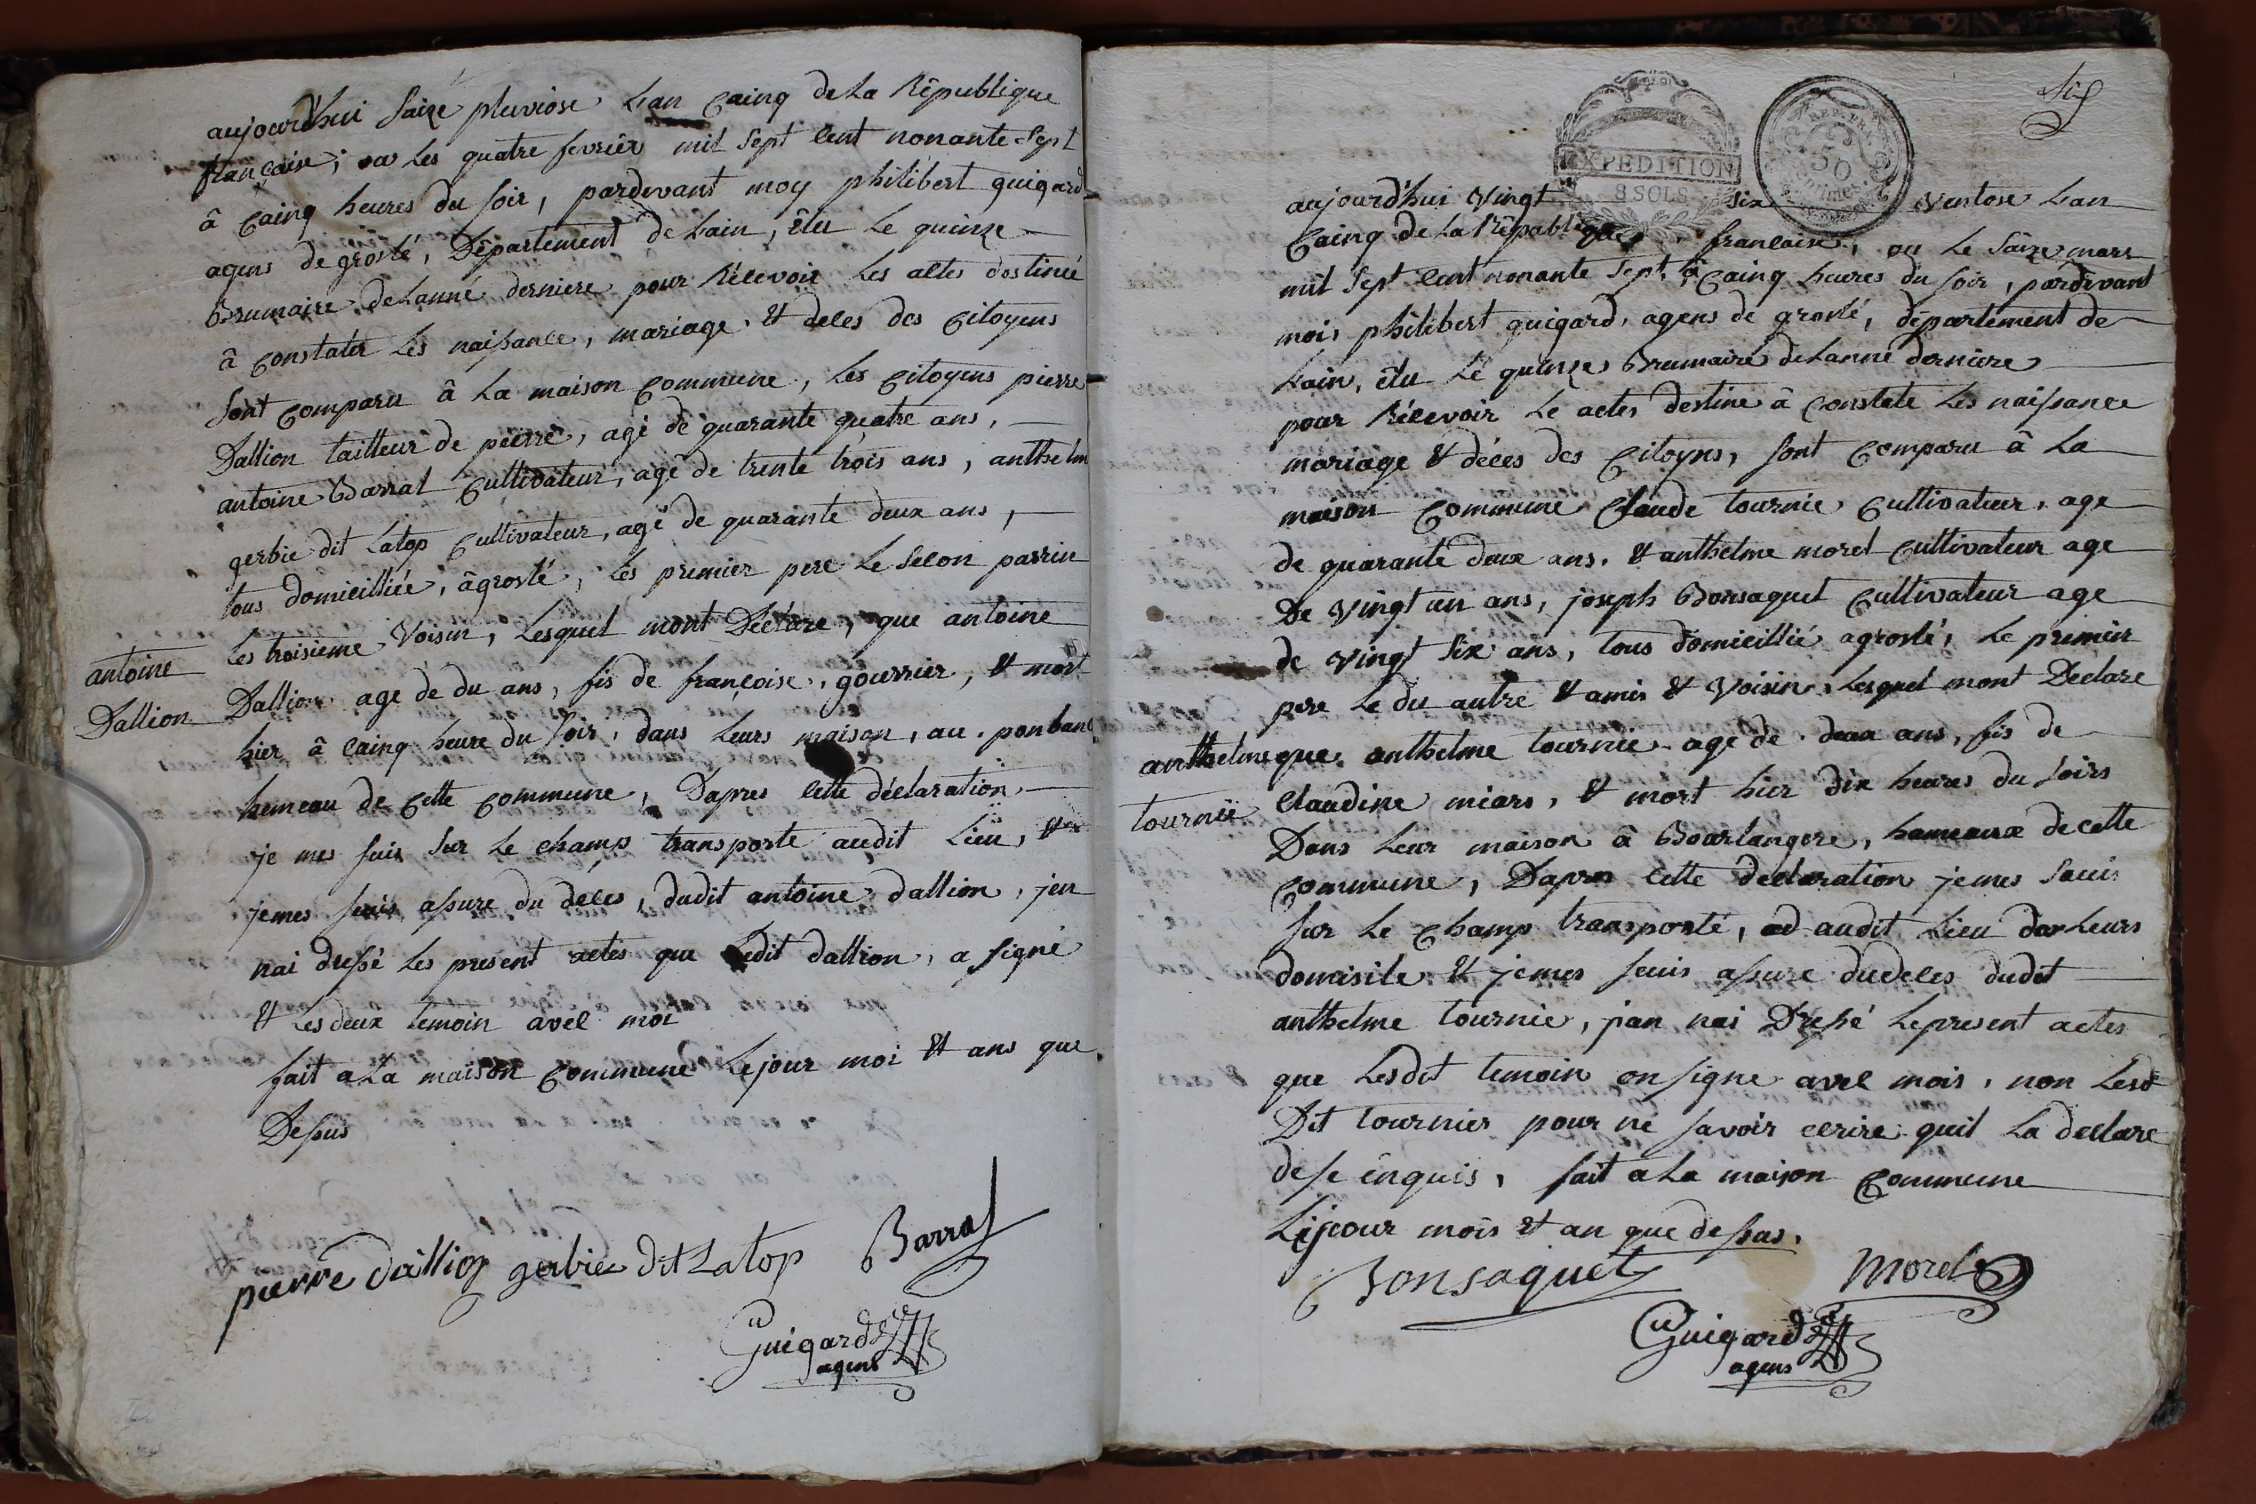 aujourd'hui saize pluviose Lan Cainq de La République
française, ou les quatre fevrier mil sept cent nonante sept
â Cainq heures du soir, pardevant moy philibert guigard
agens de groslé, Département de Lain, êlu Le quinze
Brumaire de Lanné derniere pour Récevoir Les actes destinée
â Constater Les naissance, mariage, et deces des Citoyens
sont Comparu â La maison Commune, Les Citoyens pierre
Dallion tailleur de pierre, agé de quarante quatre ans,
antoine Barral Cultivateur, agé de trente trois ans, anthelm
gerbie dit Latop Cultivateur, agé de quarante deux ans,
tous domicilliée, âgroslé, Les premier pere Le secon parrin
Les troisieme Voisin, Lesquel mont Déclare, que antoine
antoine
Dallion
Dallion agé de du ans, fis de françoise, gourrier, et mort
hier â cainq heure du soir, dans Leurs maison, au ponbanc
hemeau de Cette Commune, Dapres Cette déclaration
je mes suis sur Le champ transporte audit Lieu, et
jemes suis assure du deces, dudit antoine dallion, jen
nai dressé Les present actes que Ledit dallion, a signé
et Les deux temoin avec moi
fait a La maison Commune Le jour moi et ans que
Dessus
pierre dallion gerbie dit Latop Barral
Guigard
agens
EXPEDITION
8 SOLS
REP. FRA.
50
centimes
aujourd'hui Vingt six Ventose Lan
Cainq de La République française, ou Le saize mars
mil sept Cent nonante sept, â Cainq heures du soir, pardevant
mois philibert guigard, agens de groslé, département de
Lain, êlu Le quinze Brumaire de Lanné derniere
pour Récevoir Le actes destine â Constate Les naissance
mariage et déces des Citoyns, sont Comparu â La
maison Commune Claude tournie Cultivateur, age
de quarante deux ans, et anthelme morel Cultivateur age
De Vingt un ans, joseph Bonsaquet Cultivateur age
de Vingt six ans, tous domicillié agroslé, Le premier
pere Le du autre et amis et Voisin, Lesquel mont Declare
anthelme
tournié
que anthelme tournie age de deux ans, fis de
Claudine miars, et mort hier dix heures du soirs
Dans Leur maison â Bourlangere, hameaux de cette
Commune, Dapres Cette declaration jemes suis
sur Le Champ transporté, ad audit Lieu dor Leurs
domisile et jemes suis assure dudeces dudit
anthelme tournie, jan nai Dressé Lepresent actes
que Lesdit temoin on signe avec mois, non Lesd
Dit tournier pour ne savoir ecrire quil La declare
de se enquis, fait a La maison Commune
Le jour mois et an que dessus.
Bonsaquet morel
Guigard
agens